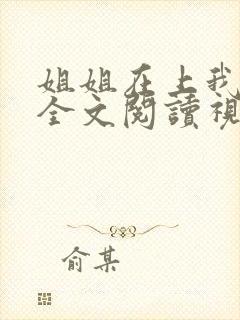 姐姐在上我
全文閱讀視
俞某